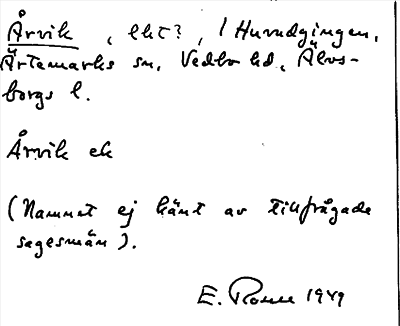 Årvik, lht?, 1 Huvudgingen,
Ärtemarks sn, Vedbo hd, Älvs-
borgs l.
Årvik ek
(Namnet ej känt av tillfrågade
sagesmän).
E. 1949